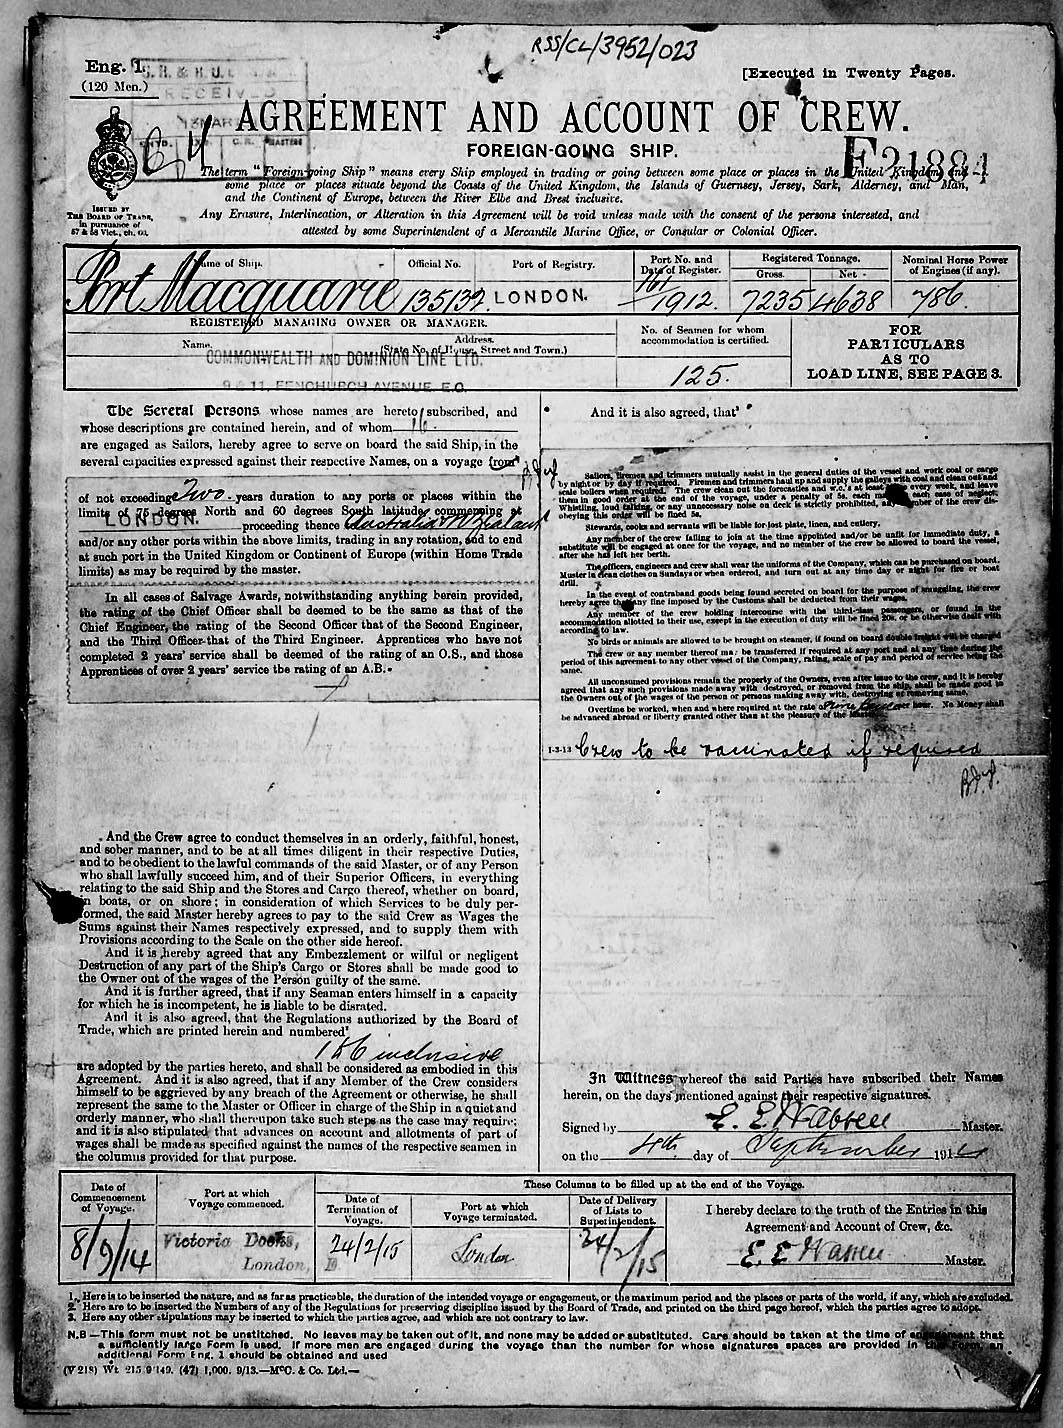 RSS/CL/3952/023
Eng. 1.
(120 Men.)
RECEIVED
[Executed in Twenty Pages.
AGREEMENT AND ACCOUNT OF CREW.
FOREIGN-GOING SHIP.
E21884
The term "Foreign-going Ship" means every Ship employed in trading or going between some place or places in the United Kingdom, and
some place or places situate beyond the Coasts of the United Kingdom, the Islands of Guernsey, Jersey, Sark, Alderney, and Man,
and the Continent of Europe, between the River Elbe and Brest inclusive.
Any Erasure, Interlineation, or Alteration in this Agreement will be void unless made with the consent of the persons interested, and
attested by some Superintendent of a Mercantile Marine Office, or Consular or Colonial Officer.
ISSUED BY
THE BOARD OF TRADE,
in pursuance of
57 & 58 Vict., ch. 60.
Name of Ship. Official No. Port of Registry. Port No. and Date of Register. Registered Tonnage. Gross. Net. Nominal Horse Power of Engines (if any).
Port Macquarie 135132 LONDON. 161/1912. 7235 4638 786.
REGISTERED MANAGING OWNER OR MANAGER.
Name. Address. (State No. of House, Street and Town.)
COMMONWEALTH AND DOMINION LINE LTD.
9 & 11, FENCHURCH AVENUE, E.C.
No. of Seamen for whom accommodation is certified.
125.
FOR
PARTICULARS
AS TO
LOAD LINE, SEE PAGE 3.
The Several Persons whose names are hereto subscribed, and
whose descriptions are contained herein, and of whom 16
are engaged as Sailors, hereby agree to serve on board the said Ship, in the
several capacities expressed against their respective Names, on a voyage from
of not exceeding Two years duration to any ports or places within the
limits of 75 degrees North and 60 degrees South latitude, commencing at
LONDON. proceeding thence Australia N Zealand
and/or any other ports within the above limits, trading in any rotation, and to end
at such port in the United Kingdom or Continent of Europe (within Home Trade
limits) as may be required by the master.
In all cases of Salvage Awards, notwithstanding anything herein provided,
the rating of the Chief Officer shall be deemed to be the same as that of the
Chief Engineer, the rating of the Second Officer that of the Second Engineer,
and the Third Officer that of the Third Engineer. Apprentices who have not
completed 2 years' service shall be deemed of the rating of an O.S., and those
Apprentices of over 2 years' service the rating of an A.B.
And the Crew agree to conduct themselves in an orderly, faithful, honest,
and sober manner, and to be at all times diligent in their respective Duties,
and to be obedient to the lawful commands of the said Master, or of any Person
who shall lawfully succeed him, and of their Superior Officers, in everything
relating to the said Ship and the Stores and Cargo thereof, whether on board,
in boats, or on shore; in consideration of which Services to be duly per-
formed, the said Master hereby agrees to pay to the said Crew as Wages the
Sums against their Names respectively expressed, and to supply them with
Provisions according to the Scale on the other side hereof.
And it is hereby agreed that any Embezzlement or wilful or negligent
Destruction of any part of the Ship's Cargo or Stores shall be made good to
the Owner out of the wages of the Person guilty of the same.
And it is further agreed, that if any Seaman enters himself in a capacity
for which he is incompetent, he is liable to be disrated.
And it is also agreed, that the Regulations authorized by the Board of
Trade, which are printed herein and numbered
1 to 6 inclusive
are adopted by the parties hereto, and shall be considered as embodied in this
Agreement. And it is also agreed, that if any Member of the Crew considers
himself to be aggrieved by any breach of the Agreement or otherwise, he shall
represent the same to the Master or Officer in charge of the Ship in a quiet and
orderly manner, who shall thereupon take such steps as the case may require;
and it is also stipulated that advances on account and allotments of part of
wages shall be made as specified against the names of the respective seamen in
the columns provided for that purpose.
And it is also agreed, that
Sailors, firemen and trimmers mutually assist in the general duties of the vessel and work coal or cargo
by night or by day if required. Firemen and trimmers haul up and supply the galleys with coal and clean out and
scale boilers when required. The crew clean out the forecastles and w.c.'s at least every week, and leave
them in good order at the end of the voyage, under a penalty of 5s. each for each case of neglect.
Whistling, loud talking, or any unnecessary noise on deck is strictly prohibited, any member of the crew dis-
obeying this order will be fined 5s.
Stewards, cooks and servants will be liable for lost plate, linen, and cutlery.
Any member of the crew failing to join at the time appointed and/or be unfit for immediate duty, a
substitute will be engaged at once for the voyage, and no member of the crew be allowed to board the vessel,
after she has left her berth.
The officers, engineers and crew shall wear the uniforms of the Company, which can be purchased on board.
Muster in clean clothes on Sundays or when ordered, and turn out at any time day or night for fire or boat
drill.
In the event of contraband goods being found secreted on board for the purpose of smuggling, the crew
hereby agree that any fine imposed by the Customs shall be deducted from their wages.
Any member of the crew holding intercourse with the third-class passengers, or found in the
accommodation allotted to their use, except in the execution of duty will be fined 20s. or be otherwise dealt with
according to law.
No birds or animals are allowed to be brought on steamer, if found on board double freight will be charged
The crew or any member thereof may be transferred if required at any port and at any time during the
period of this agreement to any other vessel of the Company, rating, scale of pay and period of service being the
same.
All unconsumed provisions remain the property of the Owners, even after issue to the crew, and it is hereby
agreed that any such provisions made away with, destroyed, or removed from the ship, shall be made good to
the Owners out of the wages of the person or persons making away with, destroying or removing same.
Overtime be worked, when and where required at the rate of per hour. No Money shall
be advanced abroad or liberty granted other than at the pleasure of the Master.
1-3-13 Crew to be vaccinated if required
In Witness whereof the said Parties have subscribed their Names
herein, on the days mentioned against their respective signatures.
Signed by E. E. Warren Master.
on the 4th day of September 1914
Date of Commencement of Voyage. Port at which Voyage commenced. These Columns to be filled up at the end of the Voyage.
Date of Termination of Voyage. Port at which Voyage terminated. Date of Delivery of Lists to Superintendent.
I hereby declare to the truth of the Entries in this
Agreement and Account of Crew, &c.
8/9/14 Victoria Docks, London, E 24/2/15 London 24/2/15 E. E Warren Master.
1. Here is to be inserted the nature, and as far as practicable, the duration of the intended voyage or engagement, or the maximum period and the places or parts of the world, if any, which are excluded.
2. Here are to be inserted the Numbers of any of the Regulations for preserving discipline issued by the Board of Trade, and printed on the third page hereof, which the parties agree to adopt.
3. Here any other stipulations may be inserted to which the parties agree, and which are not contrary to law.
N.B—This form must not be unstitched. No leaves may be taken out of it, and none may be added or substituted. Care should be taken at the time of engagement that
a sufficiently large Form is used. If more men are engaged during the voyage than the number for whose signatures spaces are provided in this Form, an
additional Form Eng. 1 should be obtained and used
(V 218) Wt 215 9149. (47) 1,000. 9/13.—McC. & Co. Ltd.—